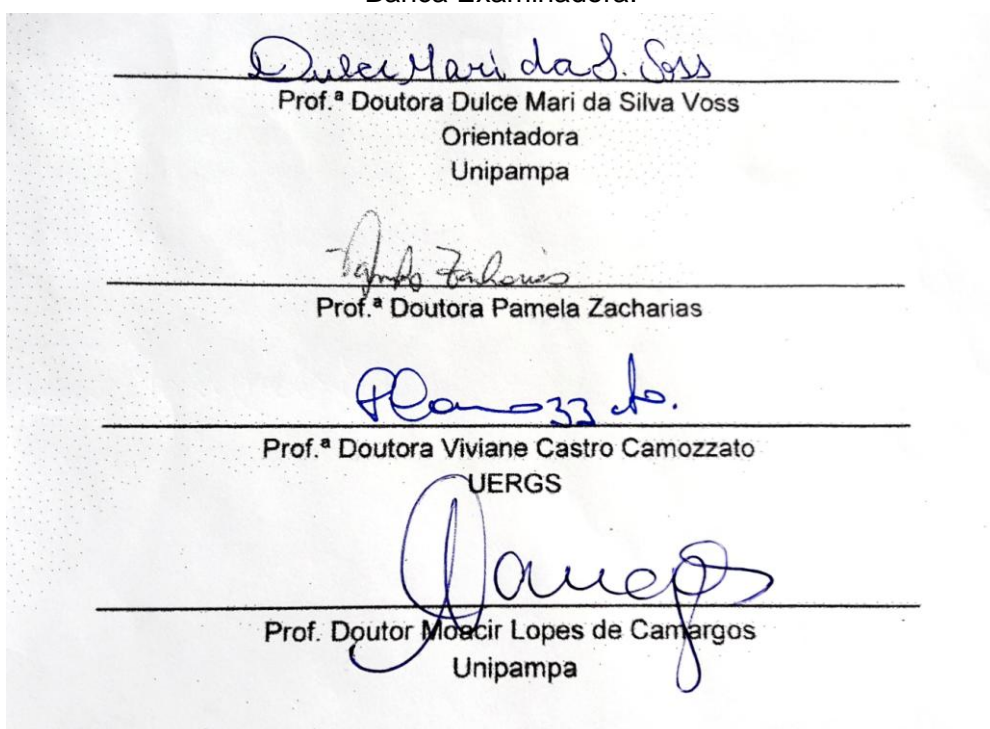 Banca Examinadora:
Dulce Mari da S. Voss
Prof.ª Doutora Dulce Mari da Silva Voss
Orientadora
Unipampa
Zacharias
Prof.ª Doutora Pamela Zacharias
Camozzato.
Prof.ª Doutora Viviane Castro Camozzato
UERGS
Camargos
Prof. Doutor Moacir Lopes de Camargos
Unipampa